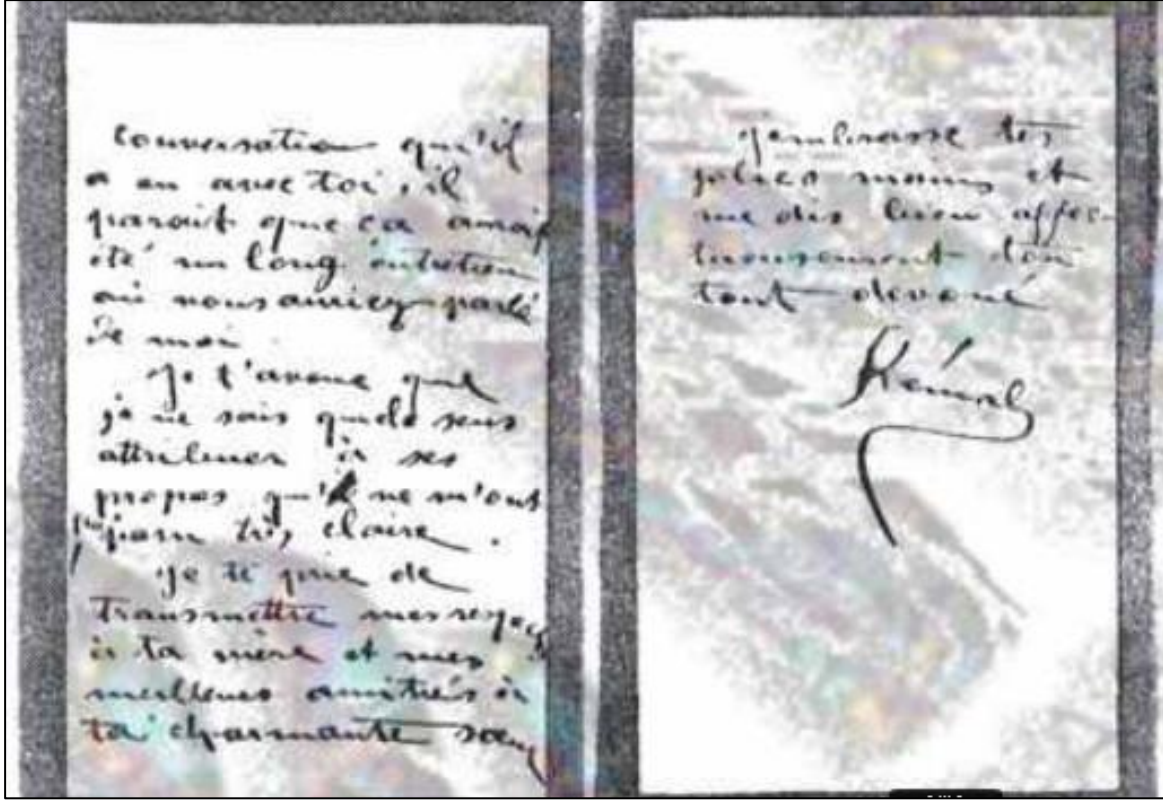 conversation qu'il
a eu avec toi, il
parait que ça aurait
été un long entretien
où vous auriez parlé
de moi.
Je t'avoue que
je ne sais quels sens
attribuer à ses
propos qu'il ne m'ont
paru très claire.
Je te prie de
transmettre mes respects
à ta mère et mes
meilleures amitiés à
ta charmante sœur
J'embrasse tes
jolies mains et
me dis bien affec-
tueusement ton
tout devoué
Kémal